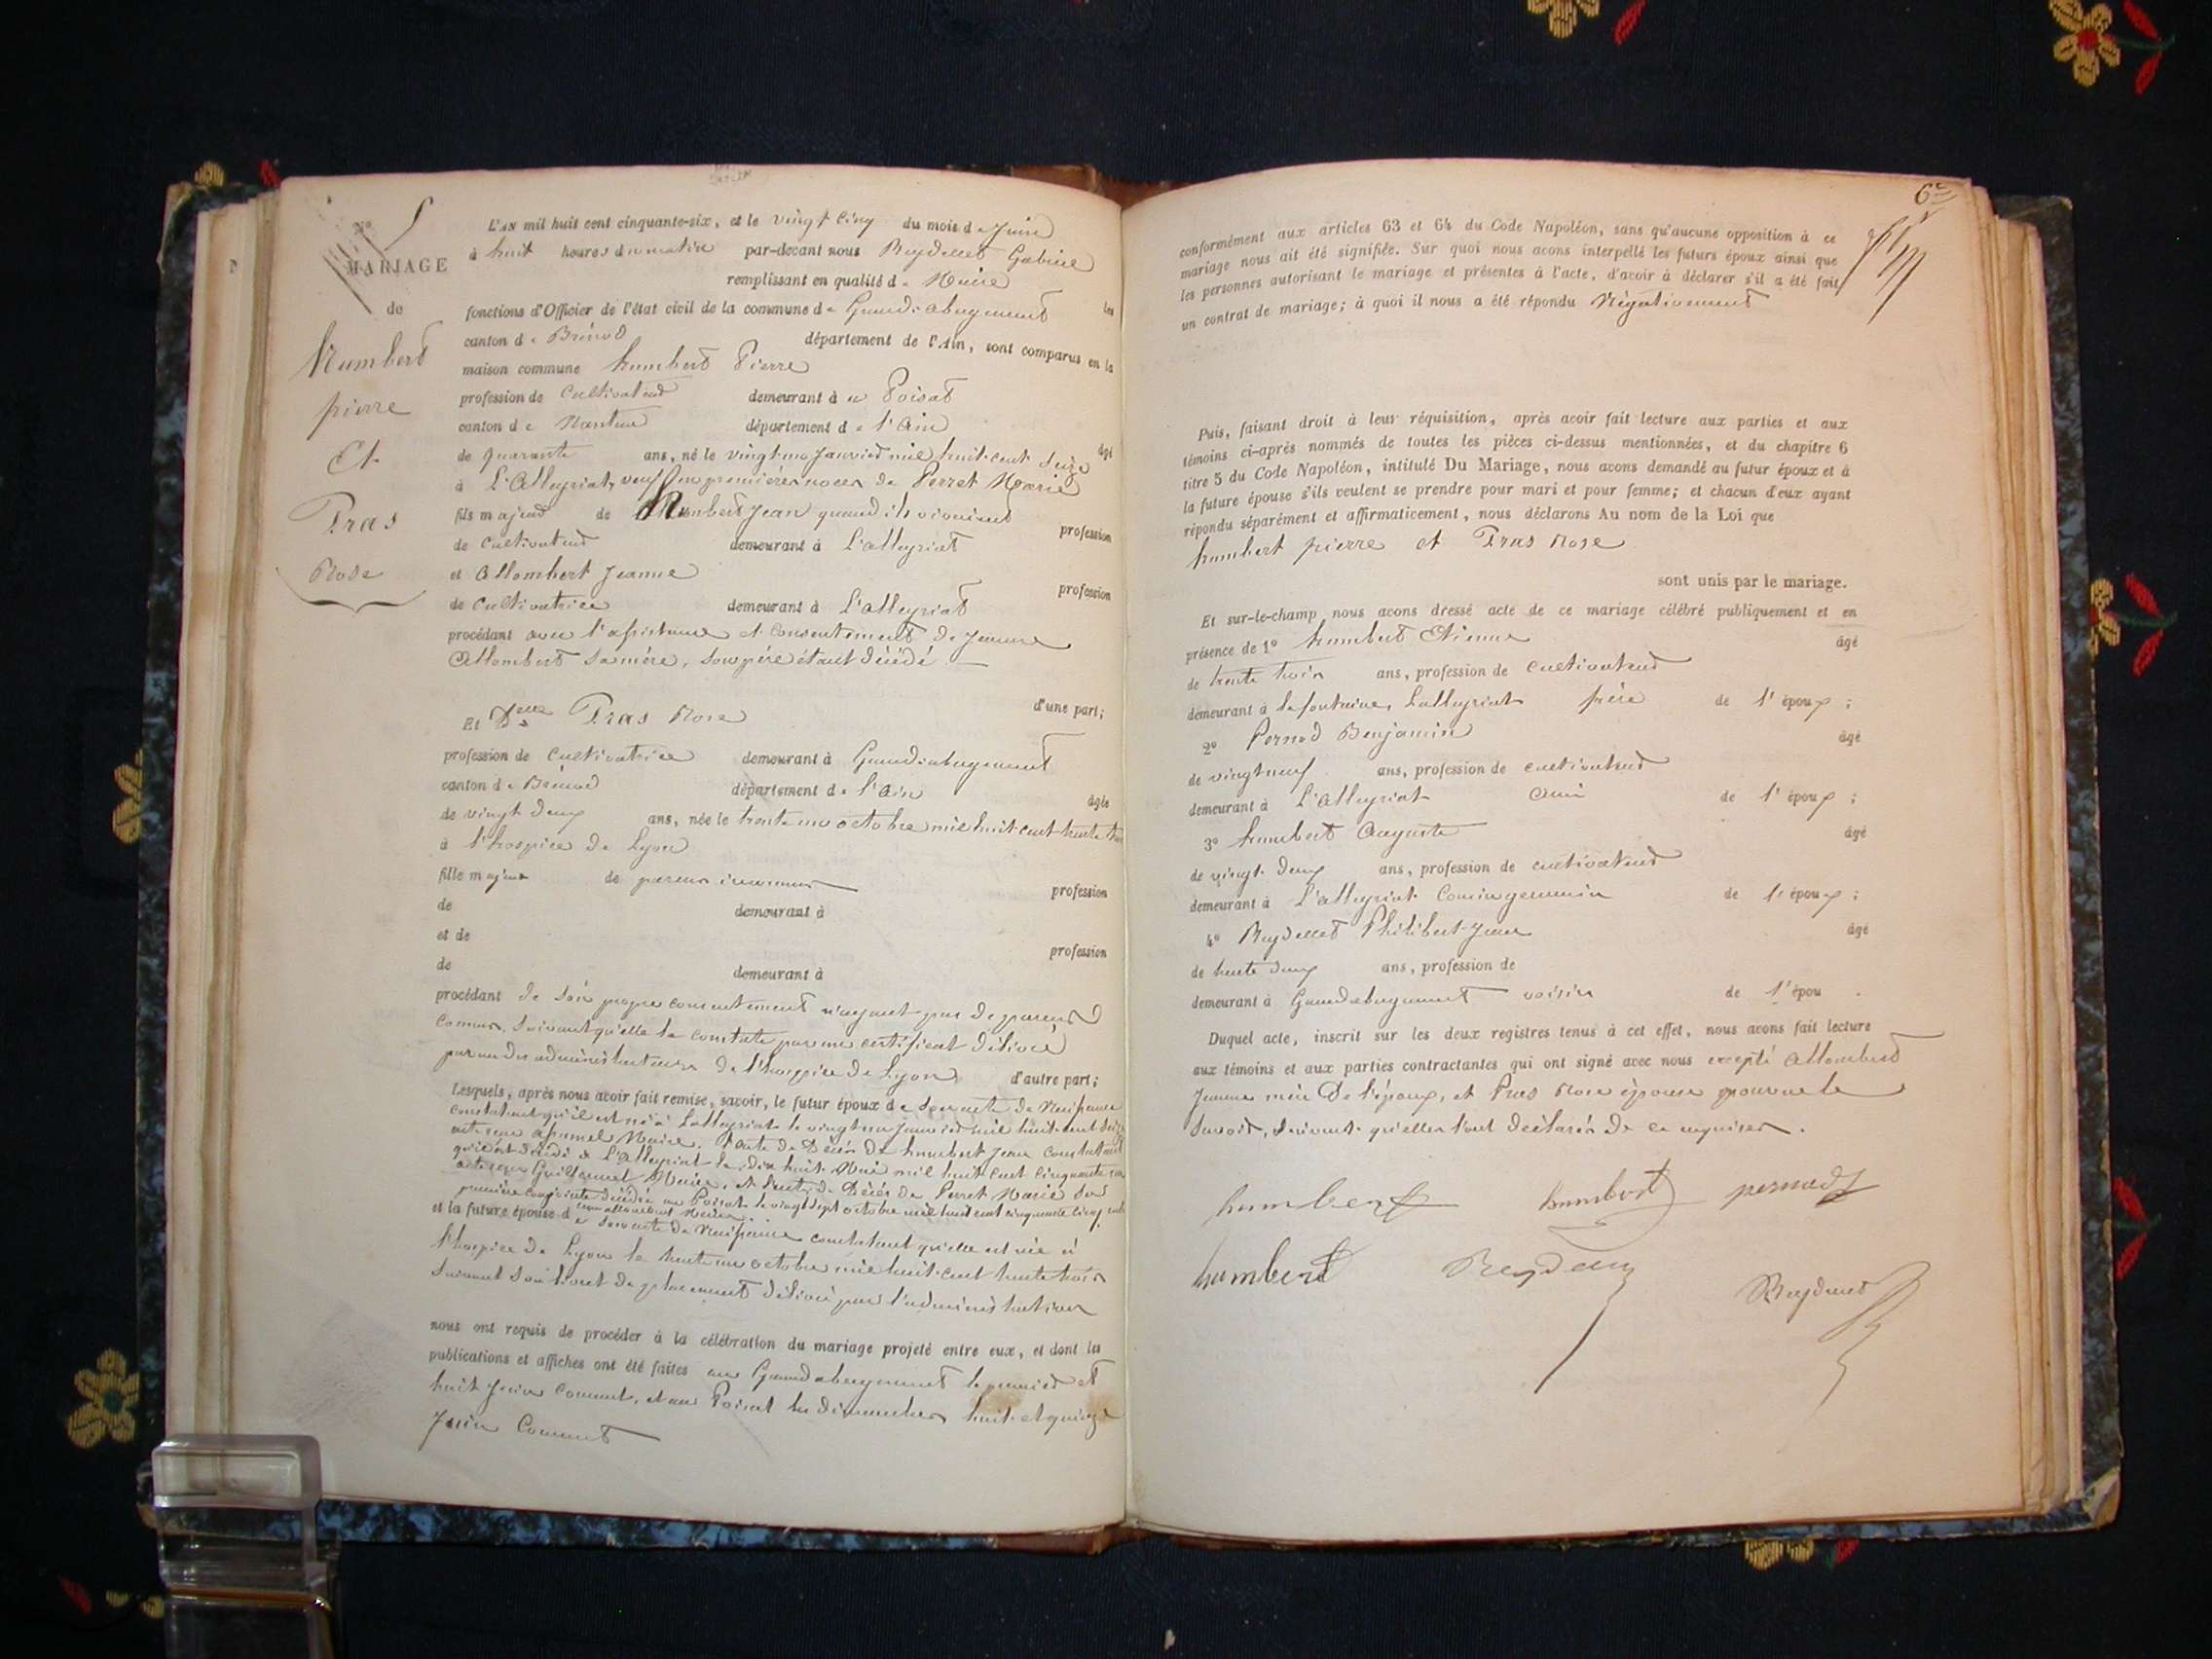 No 5
MARIAGE
de
Humbert
pierre
Et
Pras
Rose
L'AN mil huit cent cinquante-six, et le vingt Cinq du mois de Juin
à huit heures du matin par-devant nous Reydellet Gabriel
remplissant en qualité de Maire les
fonctions d'Officier de l'état civil de la commune de Grand-abergement
canton de Brénod département de l'Ain, sont comparus en la
maison commune humbert Pierre
profession de Cultivateur demeurant à u Poizat
canton de Nantua département de l'Ain âgé
de quarante ans, né le vingt-un Janvier mil huit-cent Seize
à L'Alleyriat, veuf en premières noces de Perret Marie
fils majeur de Humbert Jean quand ils vivaient profession
de Cultivateur demeurant à L'alleyriat
et Allombert Jeanne profession
de Cultivatrice demeurant à L'alleyriat
procédant avec l'assistance et Consentement de Jeanne
Allombert Sa mère, Son père étant décédé
d'une part;
Et Delle Pras Rose
profession de Cultivatrice demeurant à Grand-abergement
canton de Brénod département de l'Ain âgée
de vingt deux ans, née le trente un octobre mil huit-cent-trente trois
à l'hospice de Lyon
fille majeure de parens inconnus profession
de demeurant à
et de profession
de demeurant à
procédant de Son propre consentement n'ayant pas de parens
Connus, Suivant qu'elle le constate par un certificat délivré
par un des administrateurs de l'hospice de Lyon d'autre part;
Lesquels, après nous avoir fait remise, savoir, le futur époux de Son acte de Naissance
constatant qu'il est né à Lalleyriat le vingt un Janvier mil huit-cent Seize
acte reçu Maire. l'acte de Décès de humbert Jean constatant
qu'il est décédé à L'Alleyriat le dix huit Mai mil huit cent cinquante
acte reçu Guillermet Maire, et l'acte de Décès de Perret Marie Sa
première conjointe décédée au Poizat le vingt Sept octobre mil huit cent cinquante cinq
reçu allombert Maire.
et la future épouse de Son acte de Naissance constatant qu'elle est née à
l'hospice de Lyon le trente un octobre mil huit-cent trente trois
Suivant Son livret de placement délivré par l'administration
nous ont requis de procéder à la célébration du mariage projeté entre eux, et dont les
publications et affiches ont été faites au Grandabergement le premier et
huit Juin Courant, et au Poizat les dimanches huit et quinze
Juin Courant
6e
conformément aux articles 63 et 64 du Code Napoléon, sans qu'aucune opposition à ce
mariage nous ait été signifiée. Sur quoi nous avons interpellé les futurs époux ainsi que
les personnes autorisant le mariage et présentes à l'acte, d'avoir à déclarer s'il a été fait
un contrat de mariage; à quoi il nous a été répondu Négativement
Puis, faisant droit à leur réquisition, après avoir fait lecture aux parties et aux
témoins ci-après nommés de toutes les pièces ci-dessus mentionnées, et du chapitre 6
titre 5 du Code Napoléon, intitulé Du Mariage, nous avons demandé au futur époux et à
la future épouse s'ils veulent se prendre pour mari et pour femme; et chacun d'eux ayant
répondu séparément et affirmativement, nous déclarons Au nom de la Loi que
humbert pierre et Pras Rose
sont unis par le mariage.
Et sur-le-champ nous avons dressé acte de ce mariage célébré publiquement et en
présence de 1o humbert Etienne âgé
de trente trois ans, profession de cultivateur
demeurant à Lalleyriat frère de l'époux;
2o Pernod Benjamin âgé
de vingt neuf ans, profession de cultivateur
demeurant à L'Alleyriat ami de l'époux;
3o humbert Auguste âgé
de vingt deux ans, profession de cultivateur
demeurant à L'alleyriat Cousin germain de l'époux;
4o Reydellet Philibert-Jean âgé
de trente deux ans, profession de
demeurant à Grandabergement voisin de l'épou
Duquel acte, inscrit sur les deux registres tenus à cet effet, nous avons fait lecture
aux témoins et aux parties contractantes qui ont signé avec nous excepté Allombert
Jeanne mère De l'époux, et Pras Rose épouse pour ne le
Savoir, Suivant qu'elles l'ont déclaré de ce requises.
humbert humbert pernod
humbert Reydellet
Reydellet